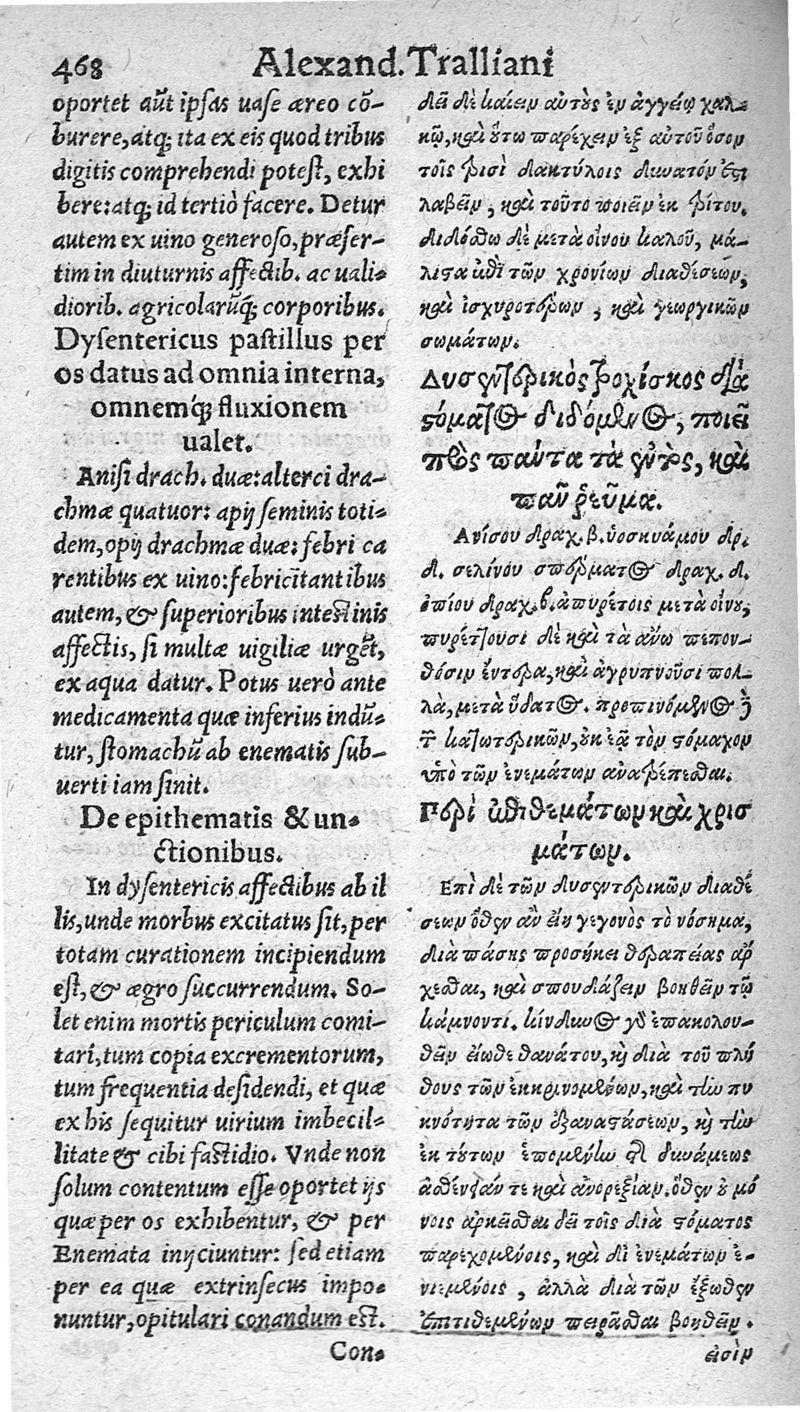 468 Alexand. Tralliani
oportet aūt ipsas uase æreo cō-
burere, atq; ita ex eis quod tribus
digitis comprehendi potest, exhi
bere: atq; id tertiò facere. Detur
autem ex uino generoso, præser-
tim in diuturnis affectib. ac uali-
diorib. agricolarūq; corporibus.
Dysentericus pastillus per
os datus ad omnia interna,
omnemq́; fluxionem
ualet.
Anisi drach. duæ: alterci dra-
chmæ quatuor: apij seminis toti-
dem, opij drachmæ duæ: febri ca
rentibus ex uino: febricitantibus
autem, & superioribus intestinis
affectis, si multæ uigiliæ urgēt,
ex aqua datur. Potus uerò ante
medicamenta quæ inferius indū-
tur, stomachū ab enematis sub-
uerti iam sinit.
De epithematis & un-
ctionibus.
In dysentericis affectibus ab il
lis, unde morbus excitatus sit, per
totam curationem incipiendum
est, & ægro succurrendum. So-
let enim mortis periculum comi-
tari, tum copia excrementorum,
tum frequentia desidendi, et quæ
ex his sequitur uirium imbecil-
litate & cibi fastidio. Vnde non
solum contentum esse oportet ijs
quæ per os exhibentur, & per
Enemata inijciuntur: sed etiam
per ea quæ extrinsecus impo-
nuntur, opitulari conandum est.
Con-
δεῖ δὲ καίειν αὐτοὺς ἐν ἀγγείῳ χαλ-
κῷ, καὶ οὕτω παρέχειν ἐξ αὐτοῦ ὅσον
τοῖς τρισὶ δακτύλοις δυνατόν ἐστι
λαβεῖν, καὶ τοῦτο ποιεῖν ἐκ τρίτου.
διδόσθω δὲ μετὰ οἴνου καλοῦ, μά-
λιστα ἐπὶ τῶν χρονίων διαθέσεων,
καὶ ἰσχυροτέρων, καὶ γεωργικῶν
σωμάτων.
Δυσεντερικὸς τροχίσκος διὰ
στόματος διδόμενος, ποιεῖ
πρὸς πάντα τὰ ἐντὸς, καὶ
πᾶν ῥεῦμα.
Ἀνίσου δραχ. β. ὑοσκυάμου δρ.
δ. σελίνου σπέρματος δραχ. δ.
ὀπίου δραχ. β. ἀπυρέτοις μετὰ οἴνου,
πυρέττουσι δὲ καὶ τὰ ἄνω πεπον-
θόσιν ἔντερα, καὶ ἀγρυπνοῦσι πολ-
λὰ, μετὰ ὕδατος. προπινόμενος
τῶν κατωτερικῶν, οὐκ ἐᾷ τὸν στόμαχον
ὑπὸ τῶν ἐνεμάτων ἀνατρέπεσθαι.
Περὶ ἐπιθεμάτων καὶ χρισ
μάτων.
Ἐπὶ δὲ τῶν δυσεντερικῶν διαθέ
σεων ὅθεν ἂν εἴη γεγονὸς τὸ νόσημα,
διὰ πάσης προσήκει θεραπείας ἄρ
χεσθαι, καὶ σπουδάζειν βοηθεῖν τῷ
κάμνοντι. κίνδυνος γὰρ ἐπακολου-
θεῖν εἴωθε θανάτου, καὶ διὰ τοῦ πλή
θους τῶν ἐκκρινομένων, καὶ τὴν πυ
κνότητα τῶν ἐξαναστάσεων, καὶ τὴν
ἐκ τούτων ἑπομένην τῆς δυνάμεως
ἀσθένειάν τε καὶ ἀνορεξίαν. ὅθεν οὐ μό
νοις ἀρκεῖσθαι δεῖ τοῖς διὰ στόματος
παρεχομένοις, καὶ δι᾽ ἐνεμάτων ἐ-
νιεμένοις, ἀλλὰ διὰ τῶν ἔξωθεν
ἐπιτιθεμένων πειρᾶσθαι βοηθεῖν.
εἰσὶν